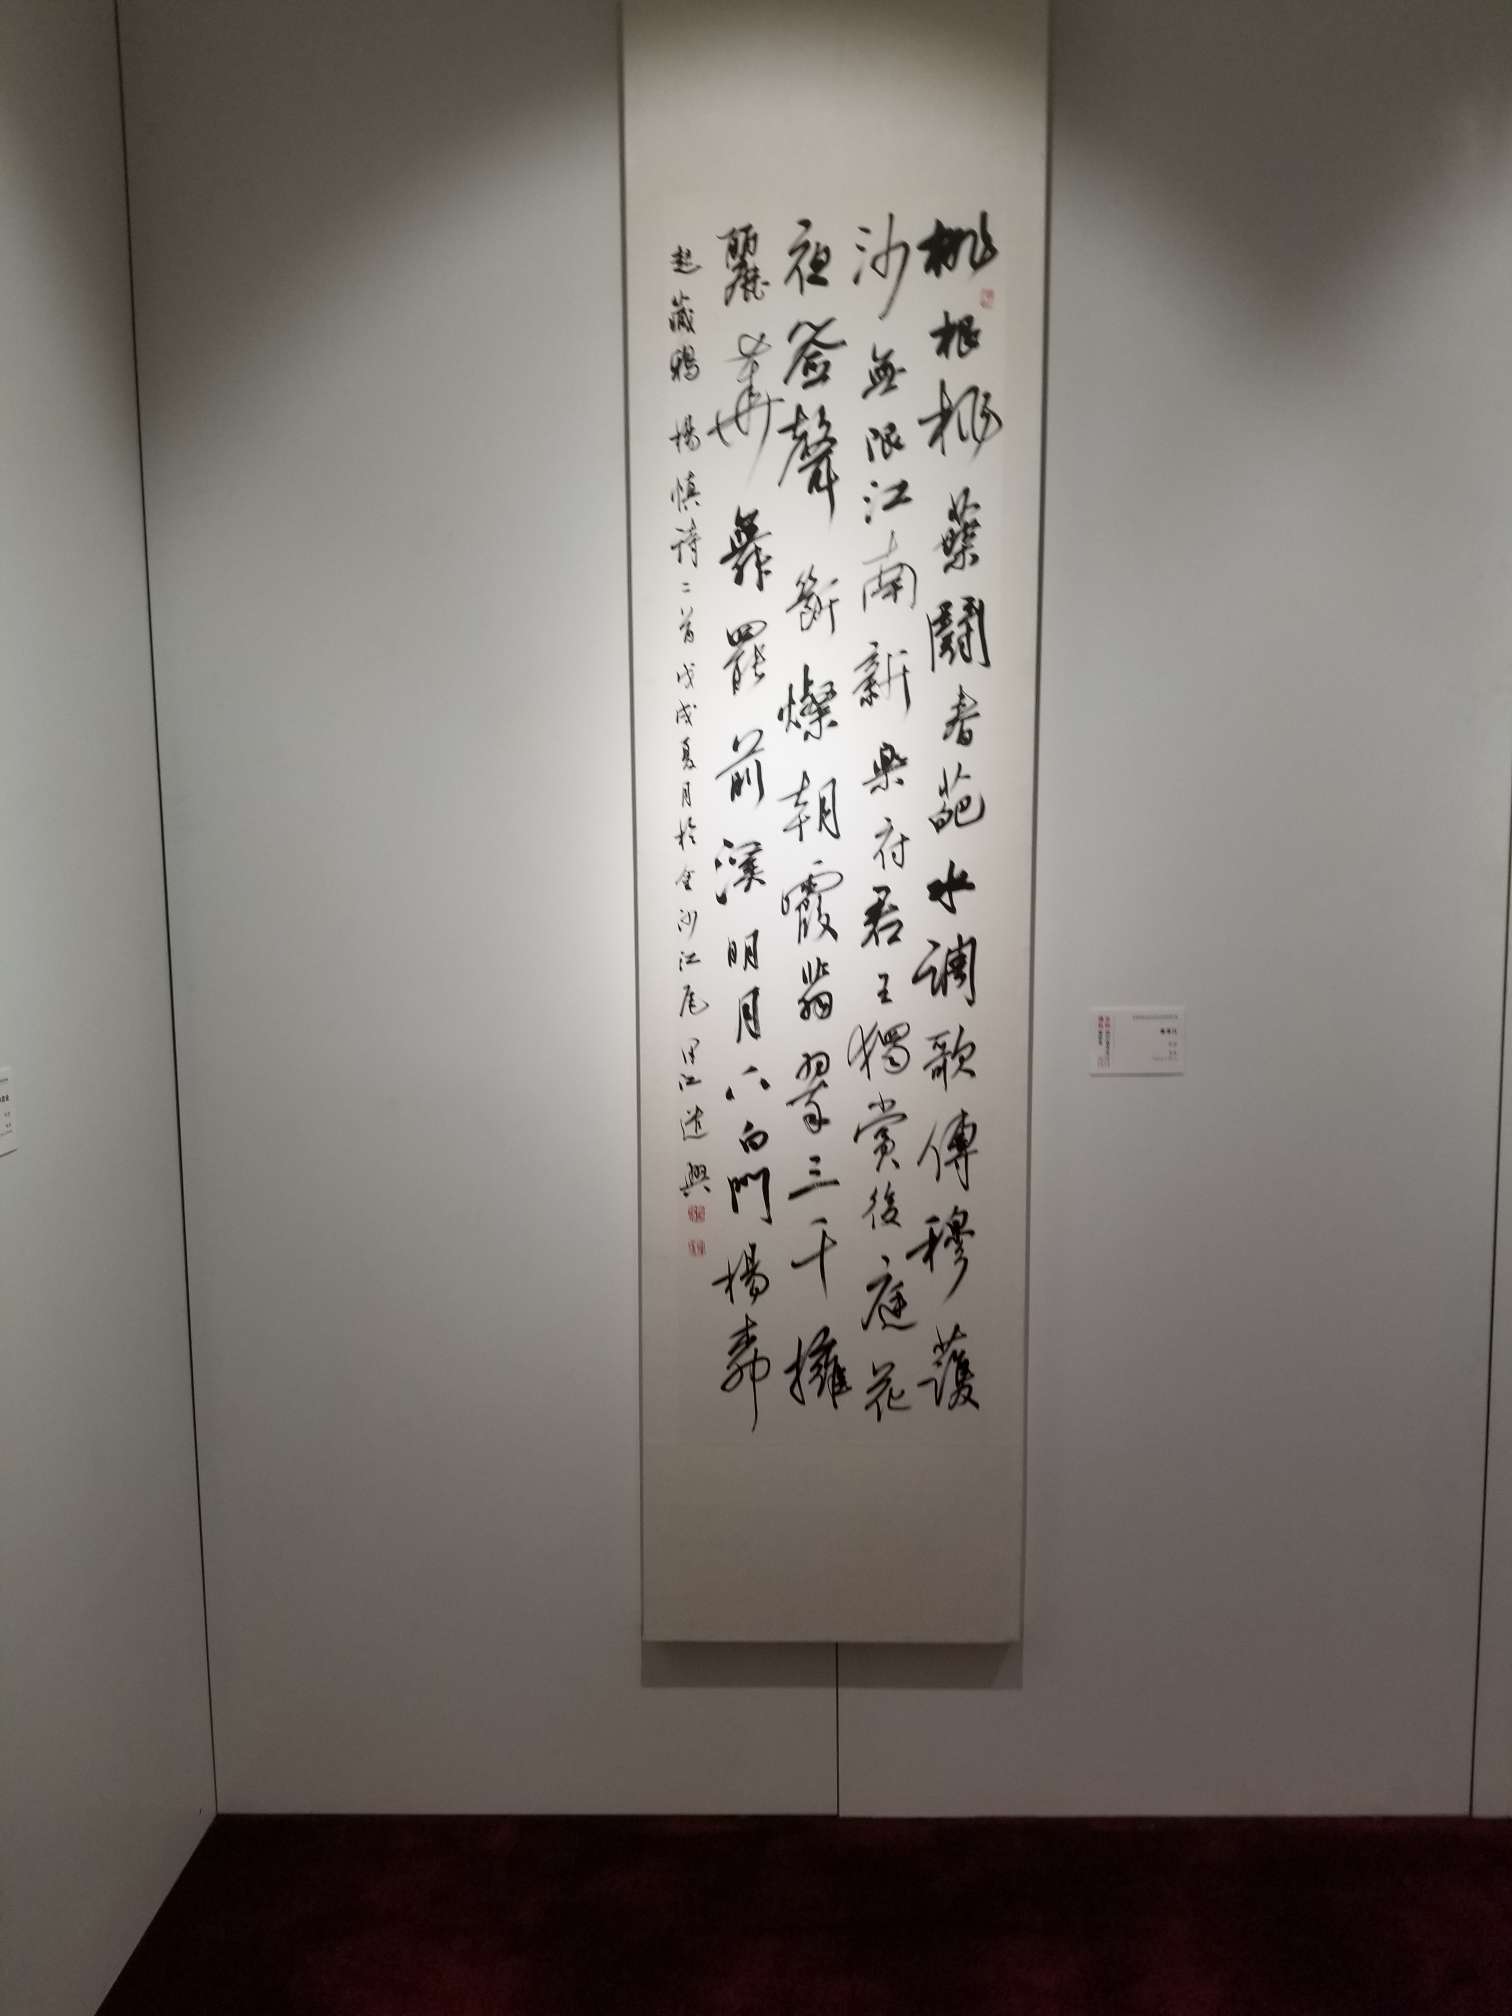 桃根桃葉鬭春葩水調歌傳穆護
沙無限江南新樂府君王獨賞後庭花
祖姿聲斷燦朝霞翡翠三千擁
麗華舞罷前溪明月下白門楊柳
起藏鴉 楊慎詩二首戊戌夏月於金沙江尾 江遣興